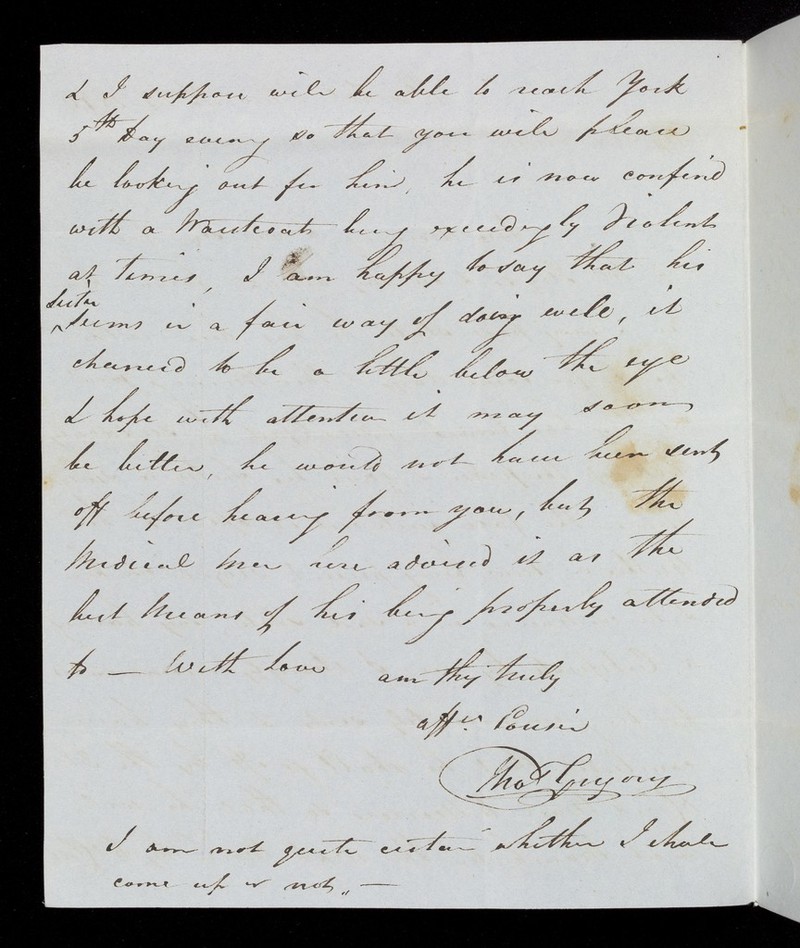 & I suppose will be able to reach York
5th Day eveng so that you will please
be looking out for him, he is now confin'd
with a Waistcoat being exceedingly Violent
at times, I am happy to say that his
Sister
seems in a fair way of doing well, it
chanced to be a little below the eye
& hope with attention it may soon
be better, he would not have been sent
off before hearing from you, but the
Medical Men here advised it as the
best Means of his being properly attended
to — With Love am thy truly
affe. Cousin
Thos Gregory
I am not quite certain whether I shall
come up or not. —